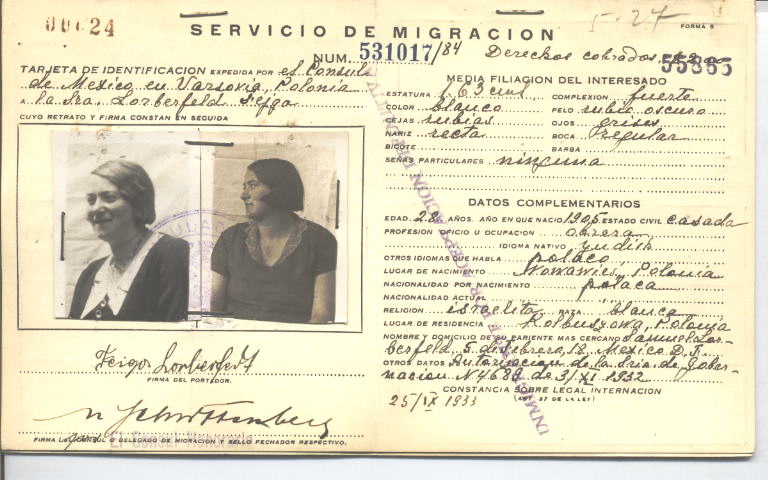 OUC24
SERVICIO DE MIGRACION
5-27
FORMA 5
NUM. 531017/84 Derechos cobrados
55865
TARJETA DE IDENTIFICACION EXPEDIDA POR el Consul
de Mexico en Varsovia, Polonia
A la Sra. Lorberfeld Fejga
CUYO RETRATO Y FIRMA CONSTAN EN SEGUIDA
MEDIA FILIACION DEL INTERESADO
ESTATURA 1.63 cms. COMPLEXION fuerte
COLOR blanco PELO rubio oscuro
CEJAS rubias OJOS grises
NARIZ recta BOCA regular
BIGOTE BARBA
SEÑAS PARTICULARES ninguna
DATOS COMPLEMENTARIOS
EDAD 28 AÑOS. AÑO EN QUE NACIO 1905 ESTADO CIVIL casada
PROFESION OFICIO U OCUPACION obrera
IDIOMA NATIVO yudish
OTROS IDIOMAS QUE HABLA polaco
LUGAR DE NACIMIENTO Nowawies, Polonia
NACIONALIDAD POR NACIMIENTO polaca
NACIONALIDAD ACTUAL "
RELIGION israelita RAZA blanca
LUGAR DE RESIDENCIA Kolbuszowa, Polonia
NOMBRE Y DOMICILIO DE SU PARIENTE MAS CERCANO Samuel Lor-
berfeld, 5 de Febrero, 18. Mexico D.F.
OTROS DATOS Autorizacion de la Sria. de Gober-
nacion N. 4688 de 3/XI 1932
CONSTANCIA SOBRE LEGAL INTERNACION
(ART. 57 DE LA LEY)
25/IX 1933
Feiga Lorberfeldt
FIRMA DEL PORTADOR.
FIRMA DEL CONSUL O DELEGADO DE MIGRACION Y SELLO FECHADOR RESPECTIVO.
El Consul Honorario